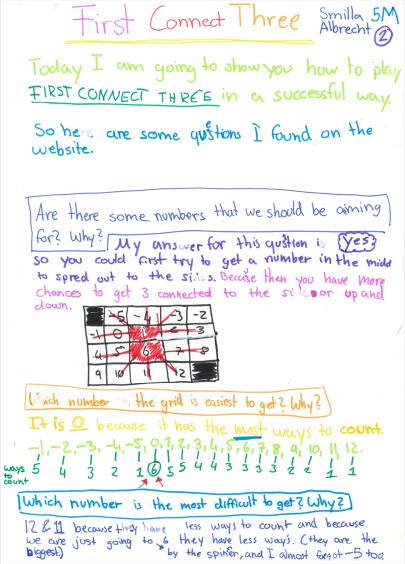 First Connect Three
Smilla 5M
Albrecht 2
Today I am going to show you how to play
FIRST CONNECT THREE in a successful way.
So here are some quetions I found on the
website.
Are there some numbers that we should be aiming
for? Why?
My answer for this qustion is yes,
so you could first try to get a number in the midd
to spred out to the sides. Because then you have more
chances to get 3 connected to the side or up and
down.
-5 -4 -3 -2
-1 0 1 2 3
4 5 6 7 8
9 10 11 12
Which number on the grid is easiest to get? Why?
It is 0 because it has the most ways to count.
-1, -2, -3, -4, -5, 0, 1, 2, 3, 4, 5, 6, 7, 8, 9, 10, 11 12.
ways to count 5 4 3 2 1 6 5 5 4 4 3 3 3 3 2 2 1 1
Which number is the most difficult to get? Why?
12 & 11 because they have less ways to count and because
we are just going to 6 they have less ways. (they are the
biggest) by the spiner, and I almost forgot -5 too.